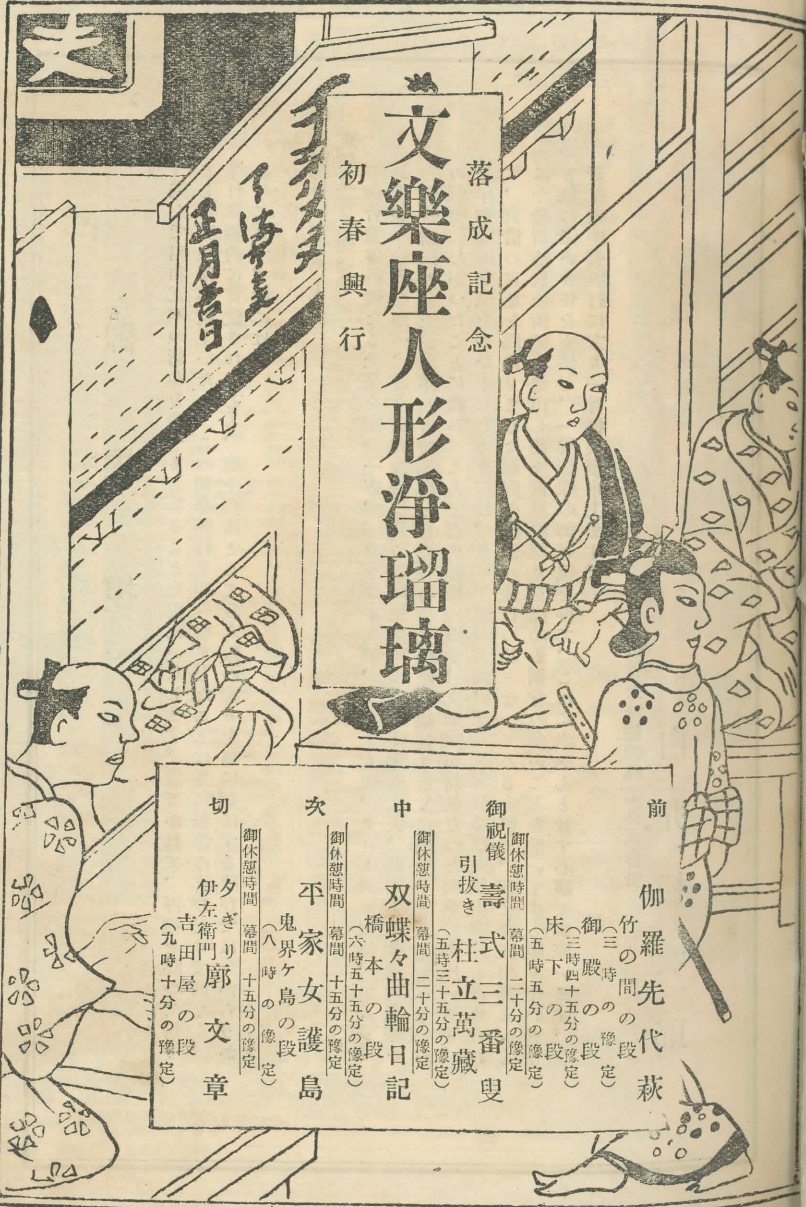 文
落成記念
文樂座人形淨瑠璃
初春興行
正月吉日
前
伽羅先代萩
竹の間の段
(三時の豫定)
御殿の段
(三時四十五分の豫定)
床下の段
(五時五分の豫定)
御休憩時間 幕間 二十分の豫定
御祝儀
壽式三番叟
引拔き
柱立萬藏
(五時三十五分の豫定)
御休憩時間 幕間 二十分の豫定
中
双蝶々曲輪日記
橋本の段
(六時五十五分の豫定)
御休憩時間 幕間 十五分の豫定
次
平家女護島
鬼界ケ島の段
(八時の豫定)
御休憩時間 幕間 十五分の豫定
切
夕ぎり
伊左衞門
廓文章
吉田屋の段
(九時十分の豫定)